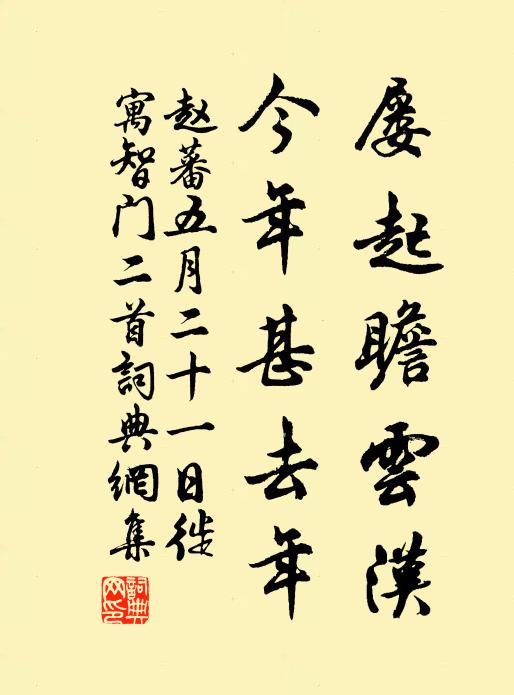 屡起瞻雲漢
今年甚去年
赵蕃五月二十一日徙
寓智门二首詞典網集
詞典網印